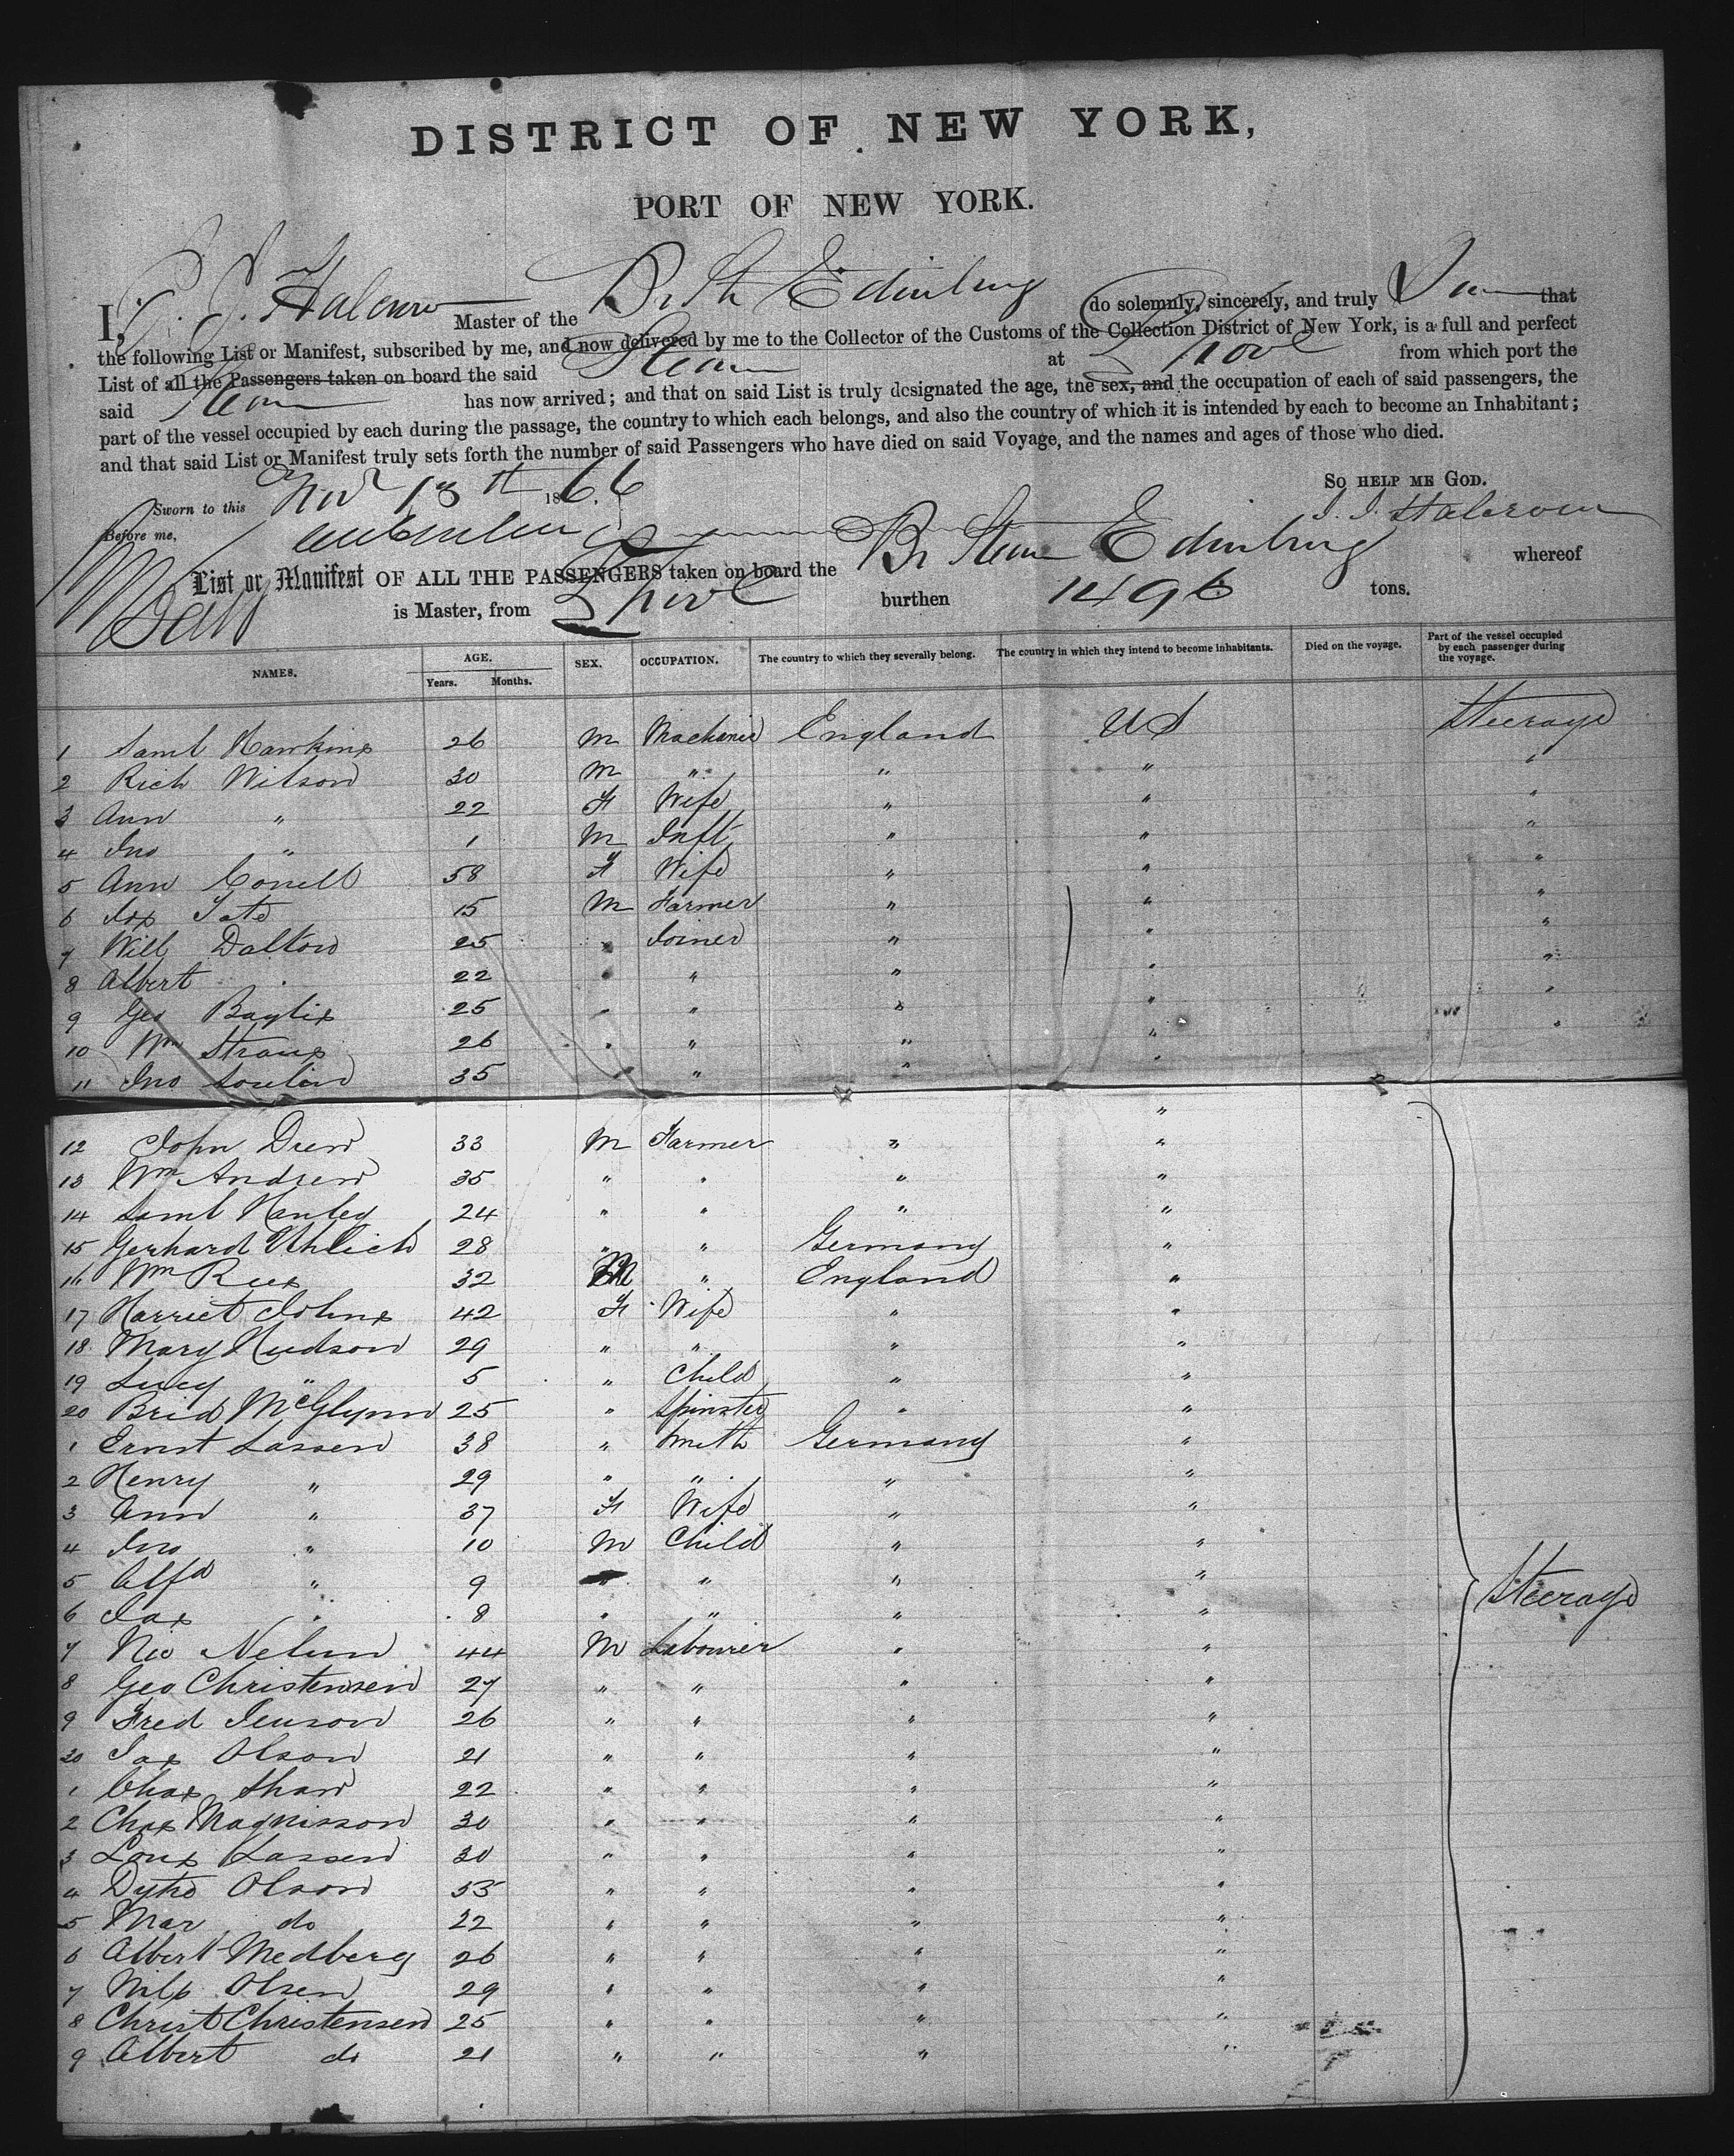 DISTRICT OF NEW YORK,
PORT OF NEW YORK.
I, J. J. Halcrow Master of the Br St Edinburg do solemnly, sincerely, and truly that
the following List or Manifest, subscribed by me, and now delivered by me to the Collector of the Customs of the Collection District of New York, is a full and perfect
List of all the Passengers taken on board the said Steam at Lpool from which port the
said Steam has now arrived; and that on said List is truly designated the age, the sex, and the occupation of each of said passengers, the
part of the vessel occupied by each during the passage, the country to which each belongs, and also the country of which it is intended by each to become an Inhabitant;
and that said List or Manifest truly sets forth the number of said Passengers who have died on said Voyage, and the names and ages of those who died.
So HELP ME GOD.
Sworn to this Nov 13th 1866
Before me, J. J. Halcrow
List or Manifest OF ALL THE PASSENGERS taken on board the Br Steam Edinburg whereof
is Master, from Lpool burthen 1496 tons.
NAMES. AGE. Years. Months. SEX. OCCUPATION. The country to which they severally belong. The country in which they intend to become inhabitants. Died on the voyage. Part of the vessel occupied by each passenger during the voyage.
1 Saml Hawkins 26 M Machinist England US Steerage
2 Rich Wilson 30 M " " " "
3 Ann " 22 F Wife " " "
4 Jno " 1 M Inft " " "
5 Ann Conell 58 F Wife " " "
6 Jos Tate 15 M Farmer " " "
7 Will Dalton 25 " Joiner " " "
8 Albert " 22 " " " " "
9 Geo Baylis 25 " " " " "
10 Wm Straus 26 " " " " "
11 Jno 35 " " " "
12 John Drew 33 M Farmer " "
13 Wm Andrew 35 " " " "
14 Saml Hanley 24 " " " "
15 Gerhard Uhlich 28 " " Germany "
16 Wm Rees 32 M " England "
17 Harriet Johns 42 F Wife " "
18 Mary Hudson 29 " " " "
19 Lucy " 5 " Child " "
20 Brid McGlynn 25 " Spinster " "
1 Ernst Lassen 38 " Smith Germany "
2 Henry " 29 " " " "
3 Ann " 37 F Wife " "
4 Jno " 10 M Child " "
5 Alfd " 9 " " " "
6 Jas " 8 " " " " Steerage
7 Nelson 44 M Labourer " "
8 Geo Christensen 27 " " " "
9 Fred Jenson 26 " " " "
30 Jas Olson 21 " " " "
1 Chas Shaw 22 " " " "
2 Chas Magnisson 30 " " " "
3 Lous Lassen 30 " " " "
4 Olson 53 " " " "
5 Mar do 22 " " " "
6 Albert Medberg 26 " " " "
7 Nils Olsen 29 " " " "
8 Christ Christensen 25 " " " "
9 Albert do 21 " " " "